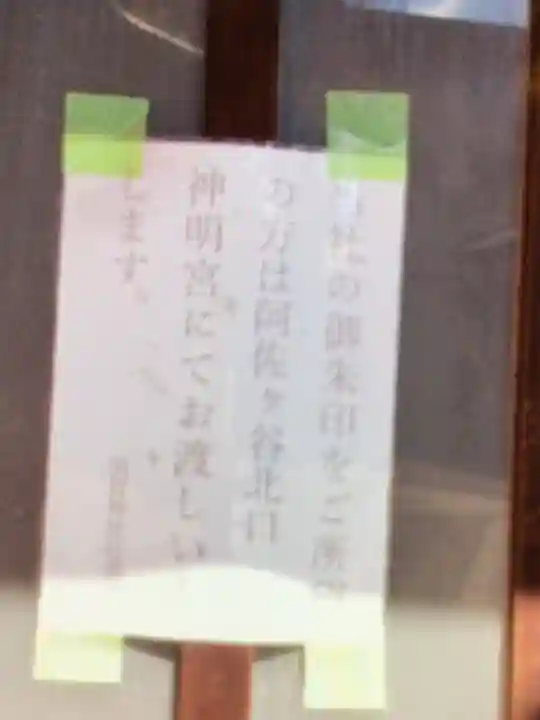 当社の御朱印をご所望
の方は阿佐ヶ谷北口
神明宮にてお渡しい
します。